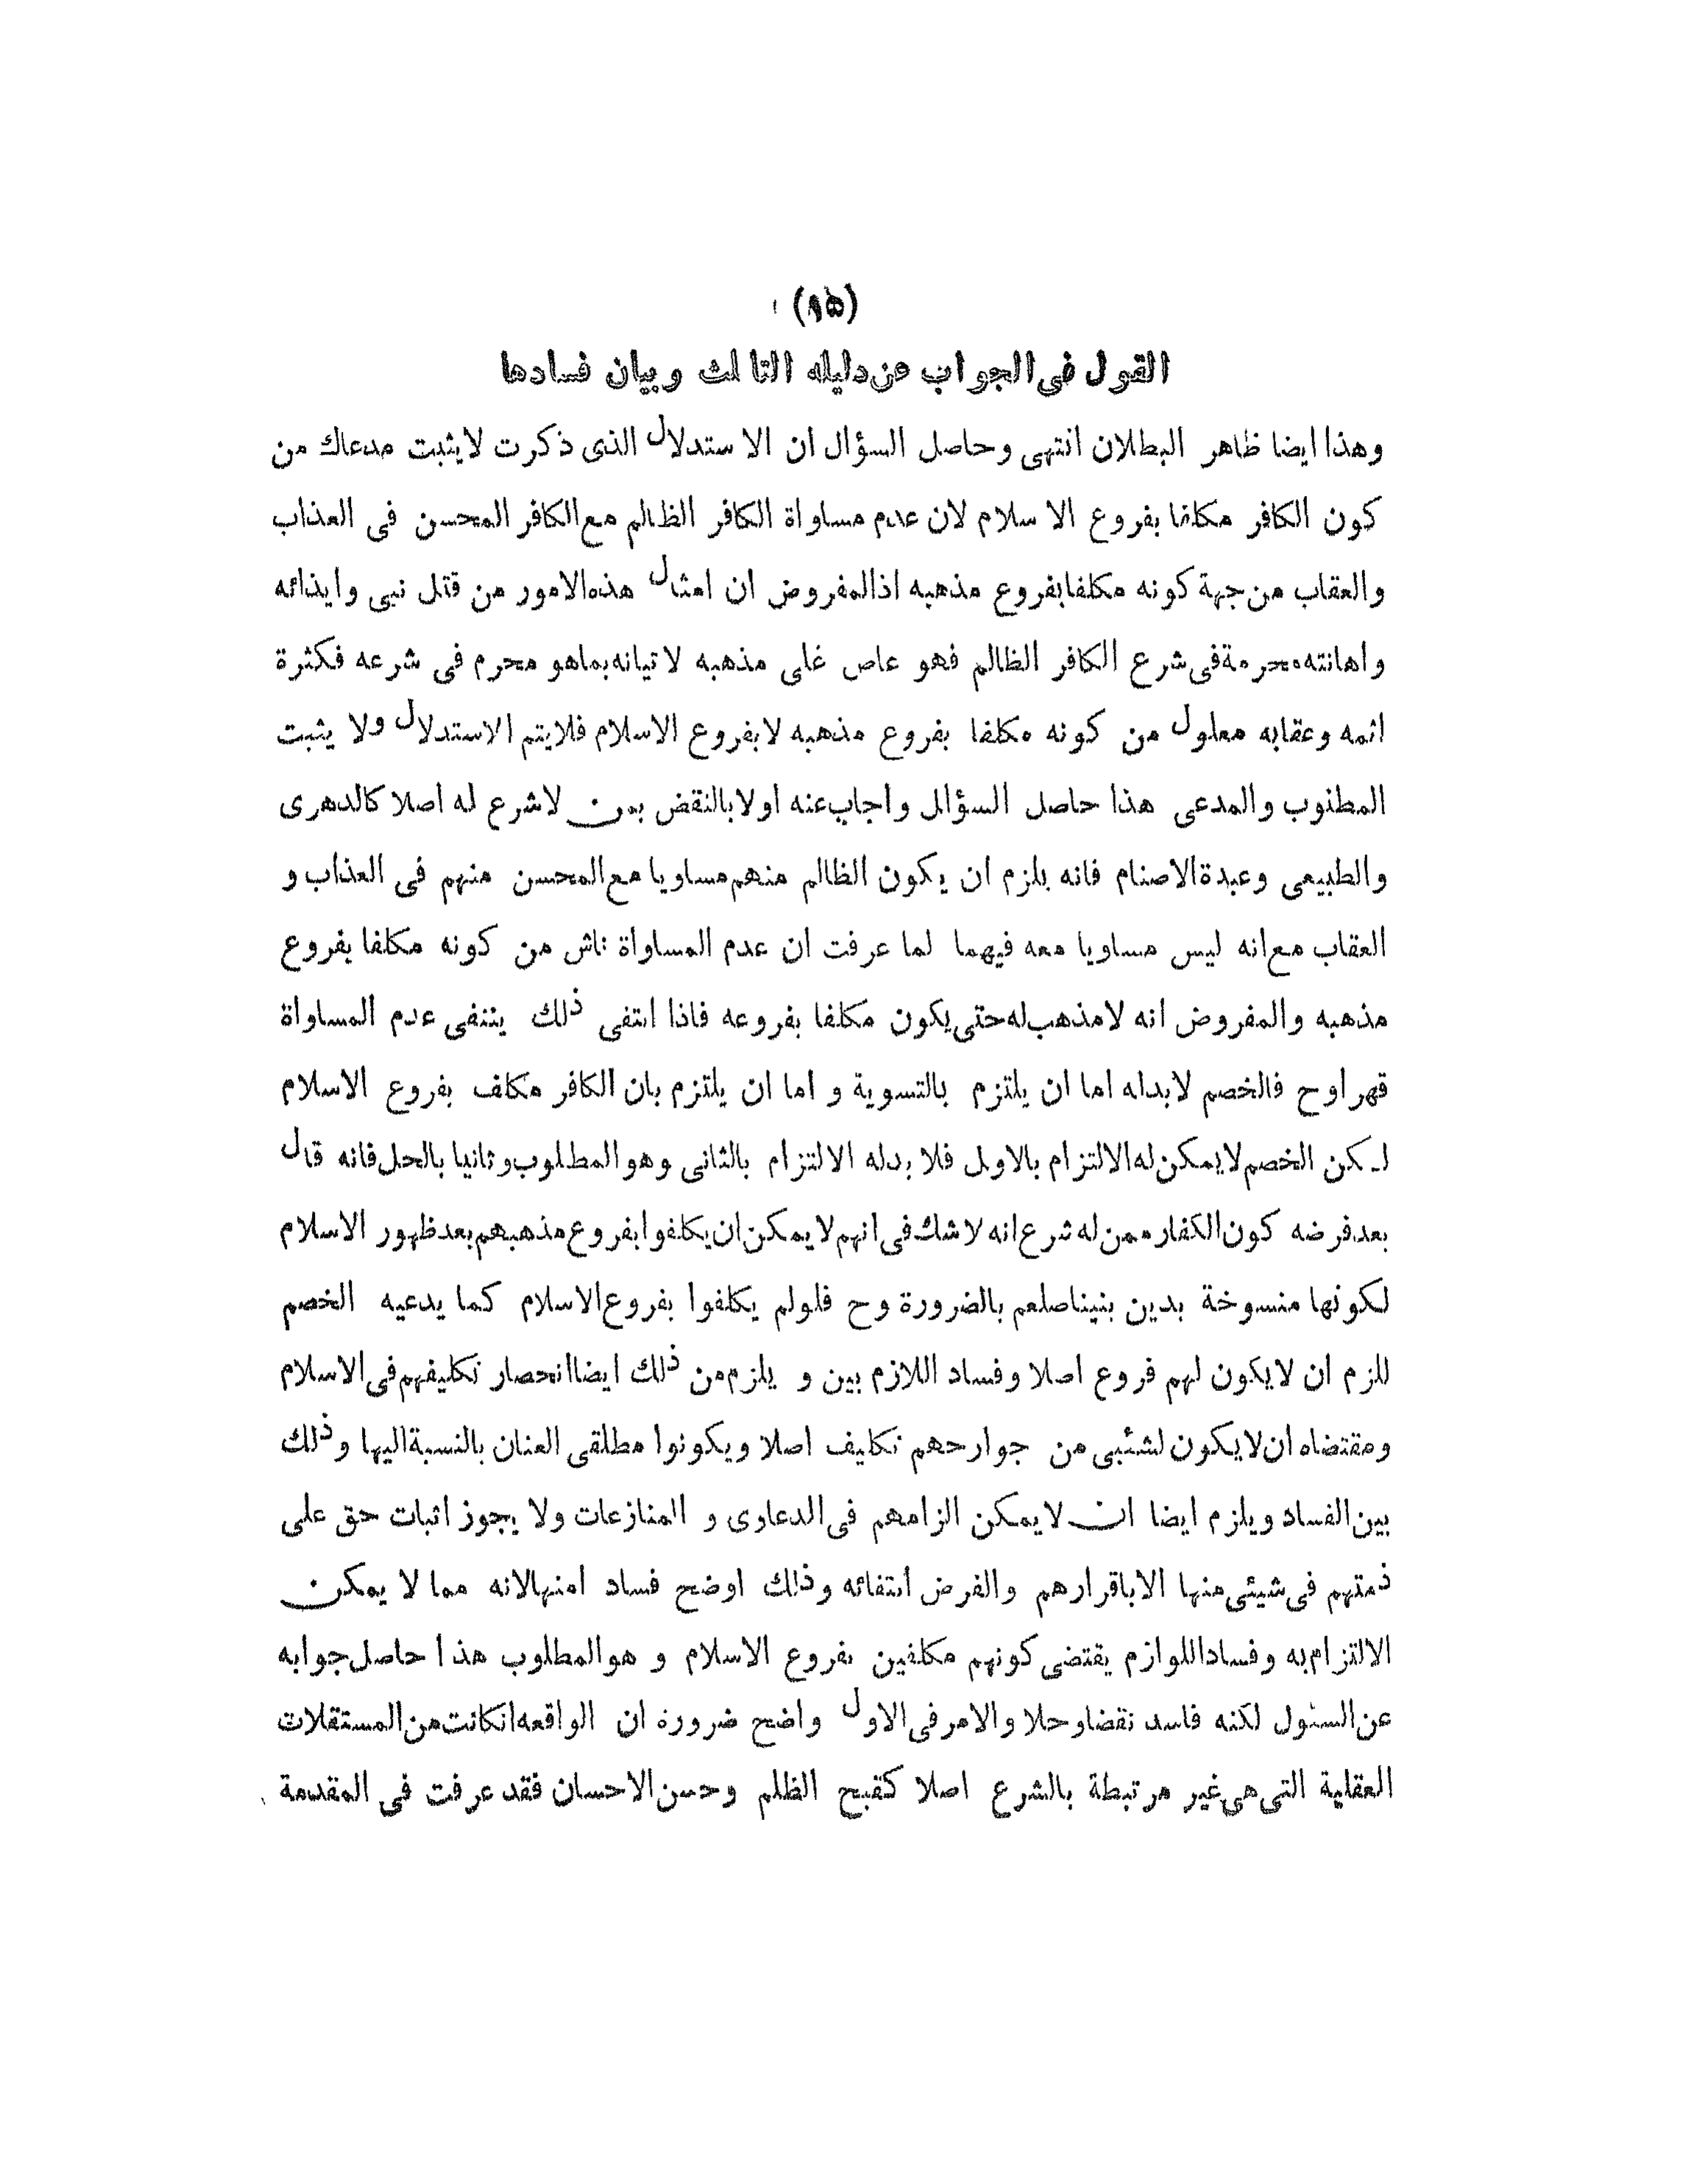 (١٥)
القول فى الجواب عن دليله الثالث وبيان فسادها
وهذا ايضا ظاهر البطلان انتهى وحاصل السؤال ان الاستدلال الذى ذكرت لايثبت مدعاك من
كون الكافر مكلفا بفروع الاسلام لان عدم مساواة الكافر الظالم مع الكافر المحسن فى العذاب
والعقاب من جهة كونه مكلفا بفروع مذهبه اذالمفروض ان امثال هذه الامور من قتل نبى وايذائه
واهانته محرمة فى شرع الكافر الظالم فهو عاص غلى مذهبه لاتيانه بماهو محرم فى شرعه فكثرة
اثمه وعقابه معلول من كونه مكلفا بفروع مذهبه لابفروع الاسلام فلايتم الاستدلال ولا يثبت
المطنوب والمدعى هذا حاصل السؤال واجاب عنه اولا بالنقض بمن لاشرع له اصلا كالدهرى
والطبيعى وعبدة الاصنام فانه يلزم ان يكون الظالم منهم مساويا مع المحسن منهم فى العذاب و
العقاب مع انه ليس مساويا معه فيهما لما عرفت ان عدم المساواة ناش من كونه مكلفا بفروع
مذهبه والمفروض انه لامذهب له حتى يكون مكلفا بفروعه فاذا انتفى ذلك ينتفى عدم المساواة
قهراوح فالخصم لابدله اما ان يلتزم بالتسوية و اما ان يلتزم بان الكافر مكلف بفروع الاسلام
لكن الخصم لايمكن له الالتزام بالاول فلا بدله الالتزام بالثانى وهوالمطلوب وثانيا بالحل فانه قال
بعد فرضه كون الكفار ممن له شرع انه لاشك فى انهم لايمكن ان يكلفوا بفروع مذهبهم بعد ظهور الاسلام
لكونها منسوخة بدين بنيناصلعم بالضرورة وح فلولم يكلفوا بفروع الاسلام كما يدعيه الخصم
للزم ان لايكون لهم فروع اصلا وفساد اللازم بين و يلزم من ذلك ايضاانحصار تكليفهم فى الاسلام
ومقتضاه ان لايكون لشئبى من جوارحهم تكليف اصلا ويكونوا مطلقى العنان بالنسبة اليها وذلك
بين الفساد ويلزم ايضا ان لايمكن الزامهم فى الدعاوى و المنازعات ولا يجوز اثبات حق على
ذمتهم فى شيئى منها الاباقرارهم والفرض انتفائه وذلك اوضح فساد امنهالانه مما لا يمكن
الالتزام به وفساد اللوازم يقتضى كونهم مكلفين بفروع الاسلام و هوالمطلوب هذا حاصل جوابه
عن السئول لكنه فاسد نقضاوحلا والامر فى الاول واضح ضرورة ان الواقعه انكانت من المستقلات
العقلية التى هى غير مرتبطة بالشرع اصلا كقبح الظلم وحسن الاحسان فقد عرفت فى المقدمة